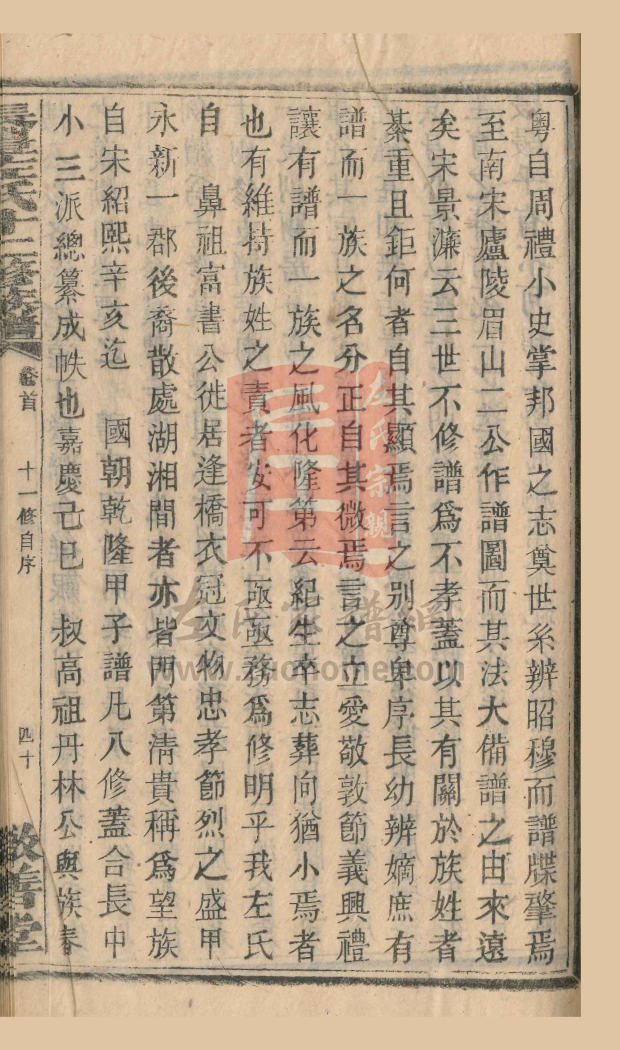 粵自周禮小史掌邦國之志奠世系辨昭穆而譜牒肇焉
至南宋廬陵眉山二公作譜圖而其法大備譜之由來遠
矣宋景濂云三世不修譜爲不孝蓋以其有關於族姓者
綦重且鉅何者自其顯焉言之别尊卑序長幼辨嫡庶有
譜而一族之名分正自其微焉言之立愛敬敦節義興禮
讓有譜而一族之風化隆第云紀生卒志葬向猶小焉者
也有維持族姓之責者安可不亟亟務爲修明乎我左氏
自 鼻祖富書公徙居逢橋衣冠文物忠孝節烈之盛甲
永新一郡後裔散處湖湘間者亦皆門第淸貴稱爲望族
自宋紹熙辛亥迄 國朝乾隆甲子譜凡八修蓋合長中
小三派總纂成帙也嘉慶己巳 叔高祖丹林公與族春
左氏十二修族譜
卷首
十一修自序
四十
敦善堂
左氏宗親
左氏家譜網